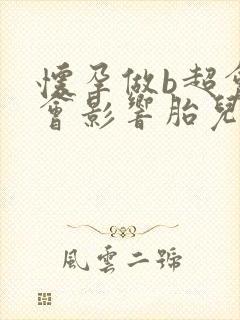 懷孕做b超會
會影響胎兒
風雲二號